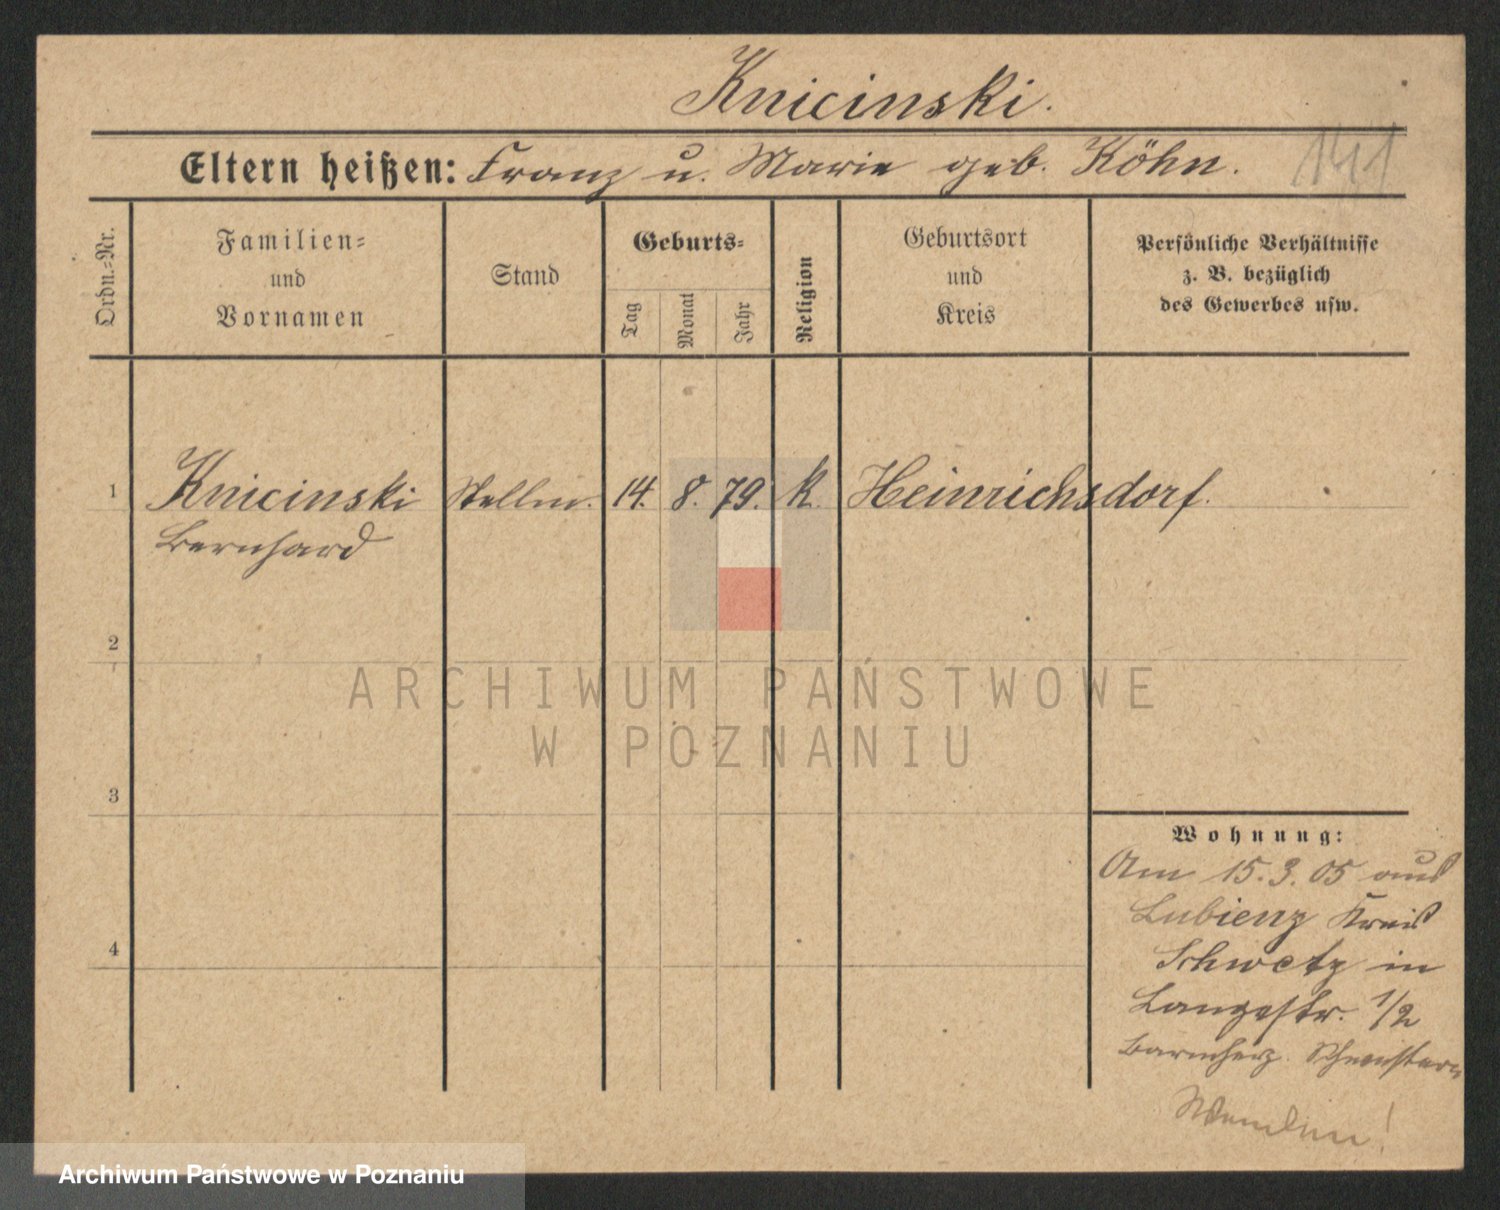 Knicinski.
Eltern heißen: Franz u. Marie geb. Köhn. 141
Ordn.-Nr.
Familien-
und
Vornamen
Stand
Geburts-
Tag
Monat
Jahr
Religion
Geburtsort
und
Kreis
Persönliche Verhältnisse
z. B. bezüglich
des Gewerbes usw.
1 Knicinski Stellm. 14. 8. 79. k. Heinrichsdorf.
Bernhard
2
3
4
ARCHIWUM PAŃSTWOWE
W POZNANIU
Wohnung:
Am 15.3.05 aus
Lubienz Kreis
Schwetz in
Langestr. 1/2
Barmherz. Schwestern
Wenden!
Archiwum Państwowe w Poznaniu